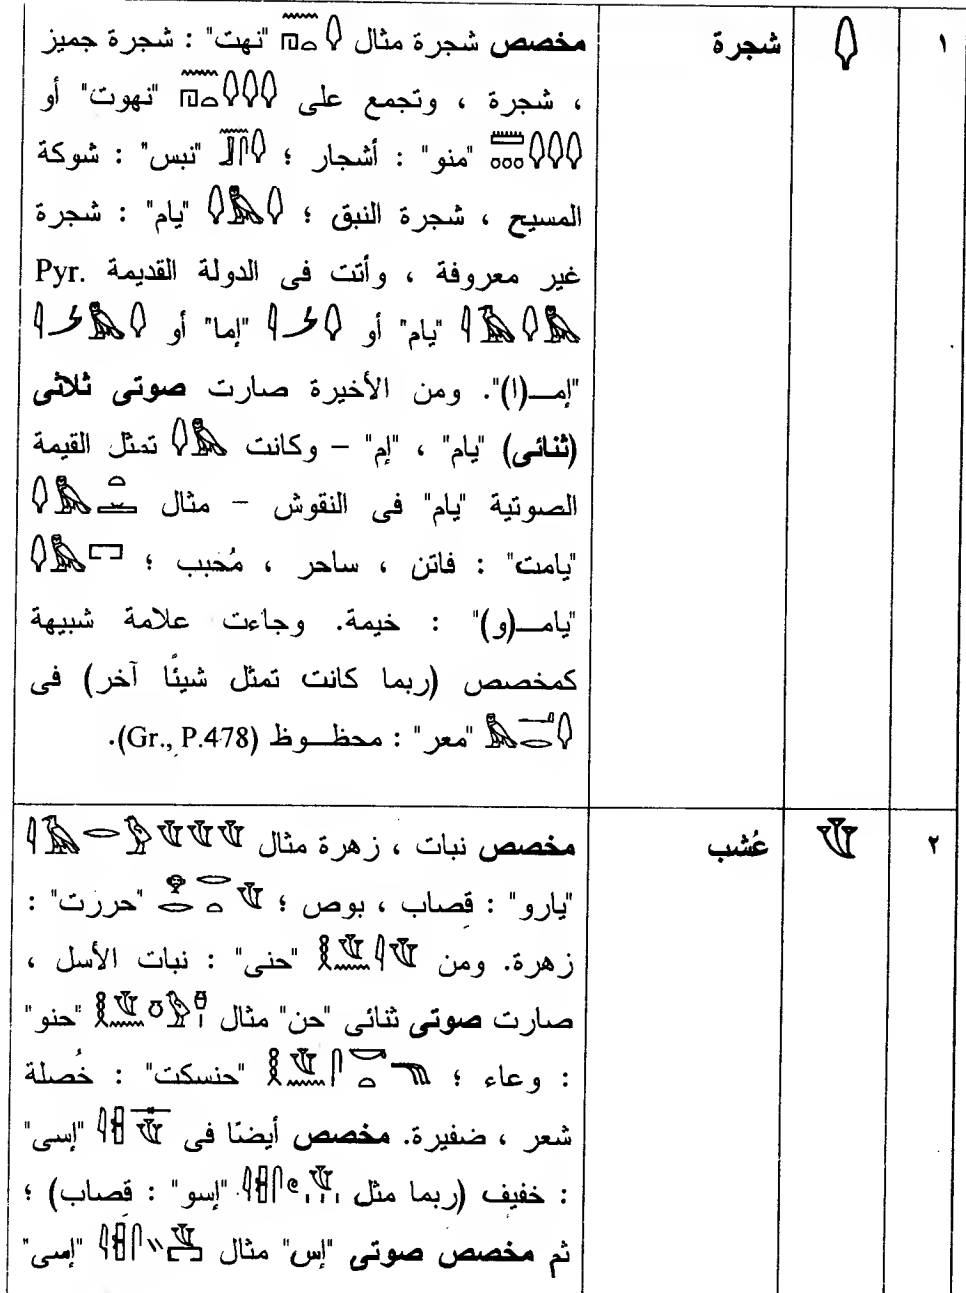 ١ شجرة مخصص شجرة مثال "نهت" : شجرة جميز
، شجرة ، وتجمع على "نهوت" أو
"منو" : أشجار ؛ "نبس" : شوكة
المسيح ، شجرة النبق ؛ "يام" : شجرة
غير معروفة ، وأتت فى الدولة القديمة Pyr.
"يام" أو "إما" أو
"إمـــ(ا)". ومن الأخيرة صارت صوتى ثلاثى
(ثنائى) "يام" ، "إم" – وكانت تمثل القيمة
الصوتية "يام" فى النقوش – مثال
"يامت" : فاتن ، ساحر ، مُحبب ؛
"يامـــ(و)" : خيمة. وجاءت علامة شبيهة
كمخصص (ربما كانت تمثل شيئًا آخر) فى
"معر" : محظـــوظ (Gr., P.478).
٢ عُشب مخصص نبات ، زهرة مثال
"يارو" : قصاب ، بوص ؛ "حررت" :
زهرة. ومن "حنى" : نبات الأسل ،
صارت صوتى ثنائى "حن" مثال "حنو"
: وعاء ؛ "حنسكت" : خُصلة
شعر ، ضفيرة. مخصص أيضًا فى "إسى"
: خفيف (ربما مثل "إسو" : قصاب) ؛
ثم مخصص صوتى "إس" مثال "إسى"